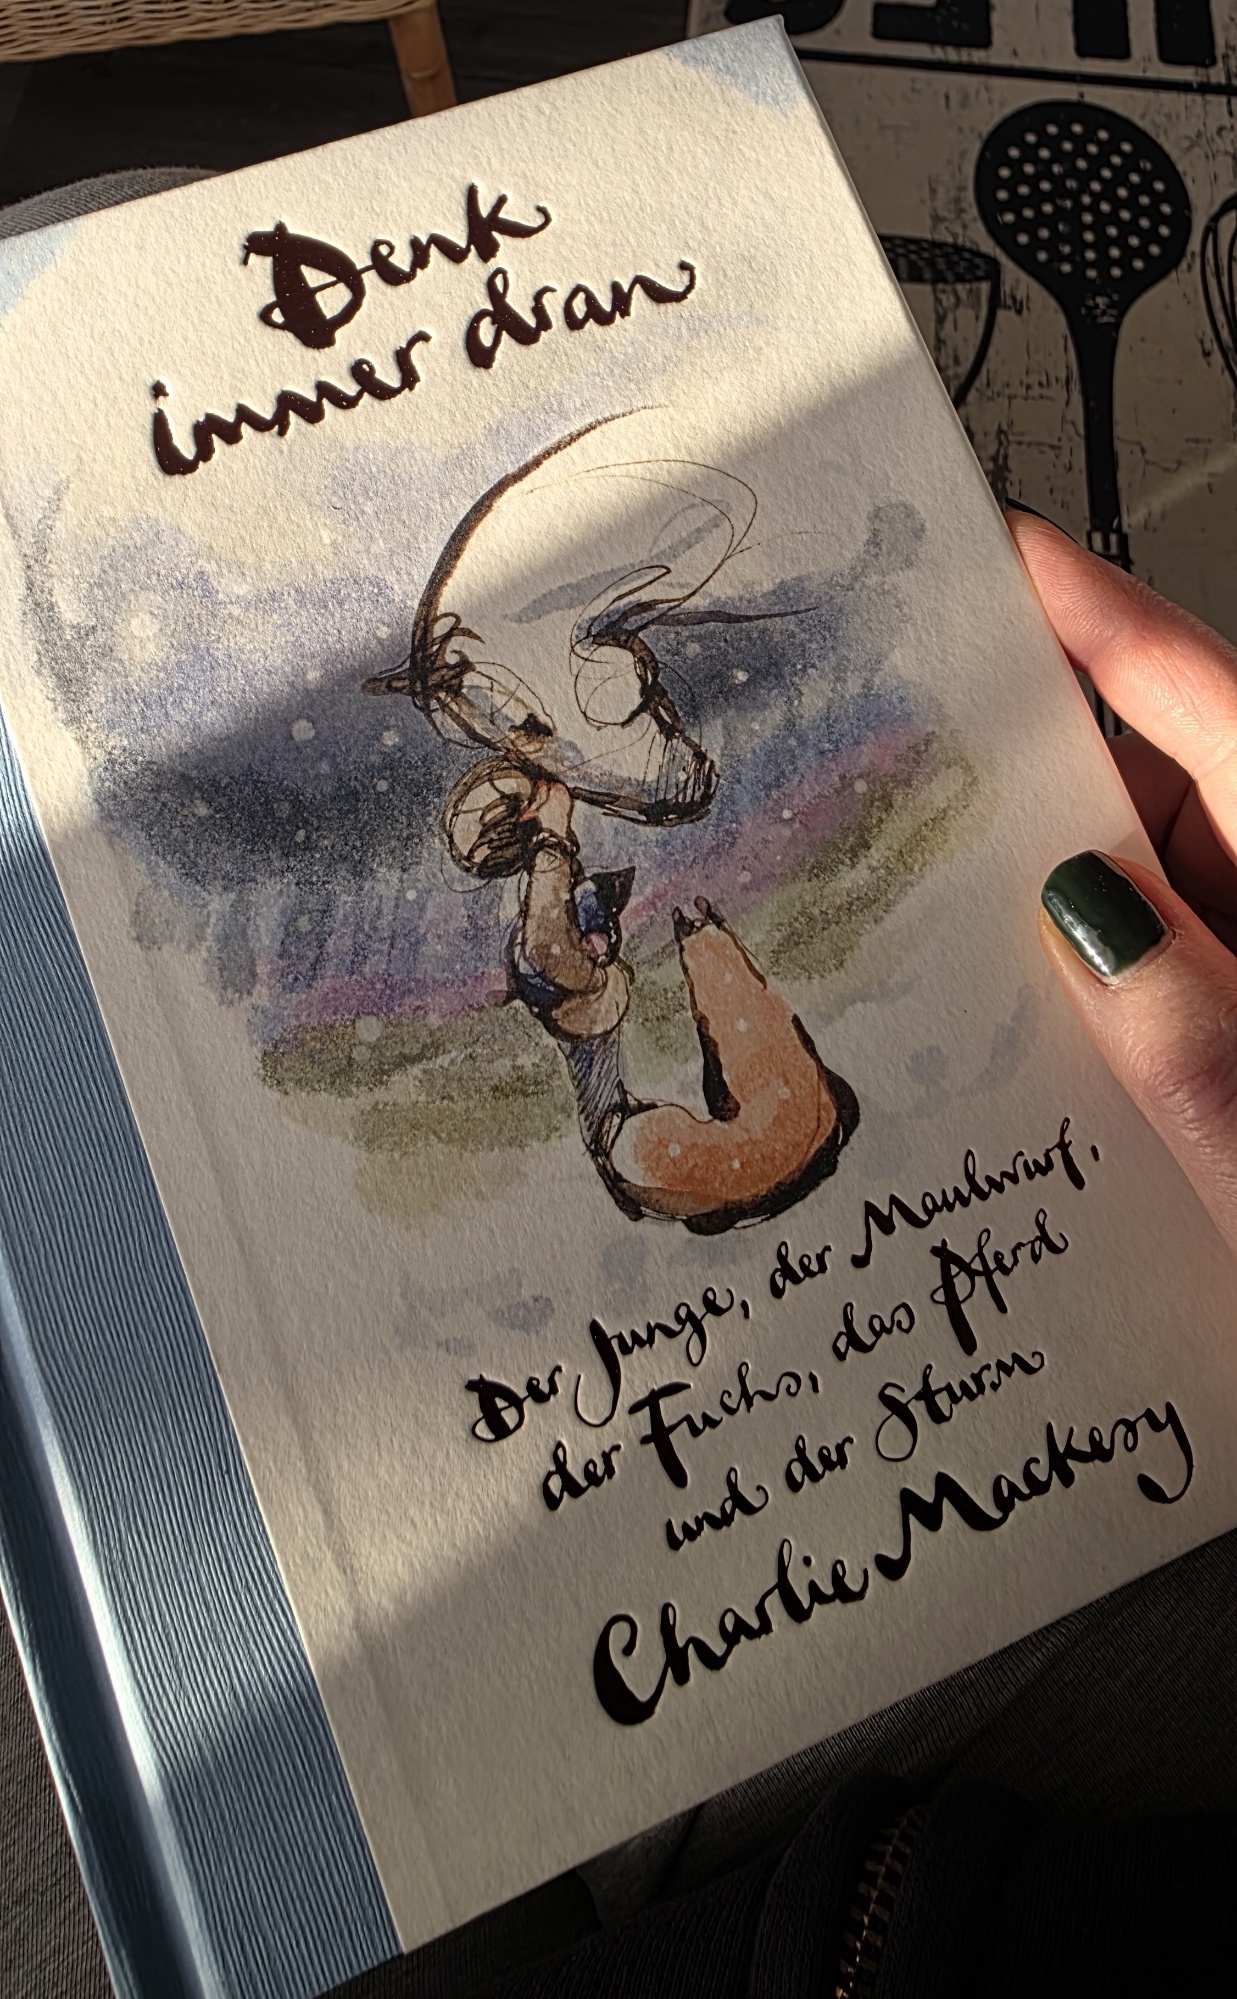 Denk
immer dran
Der Junge, der Maulwurf,
der Fuchs, das Pferd
und der Sturm
Charlie Mackesy